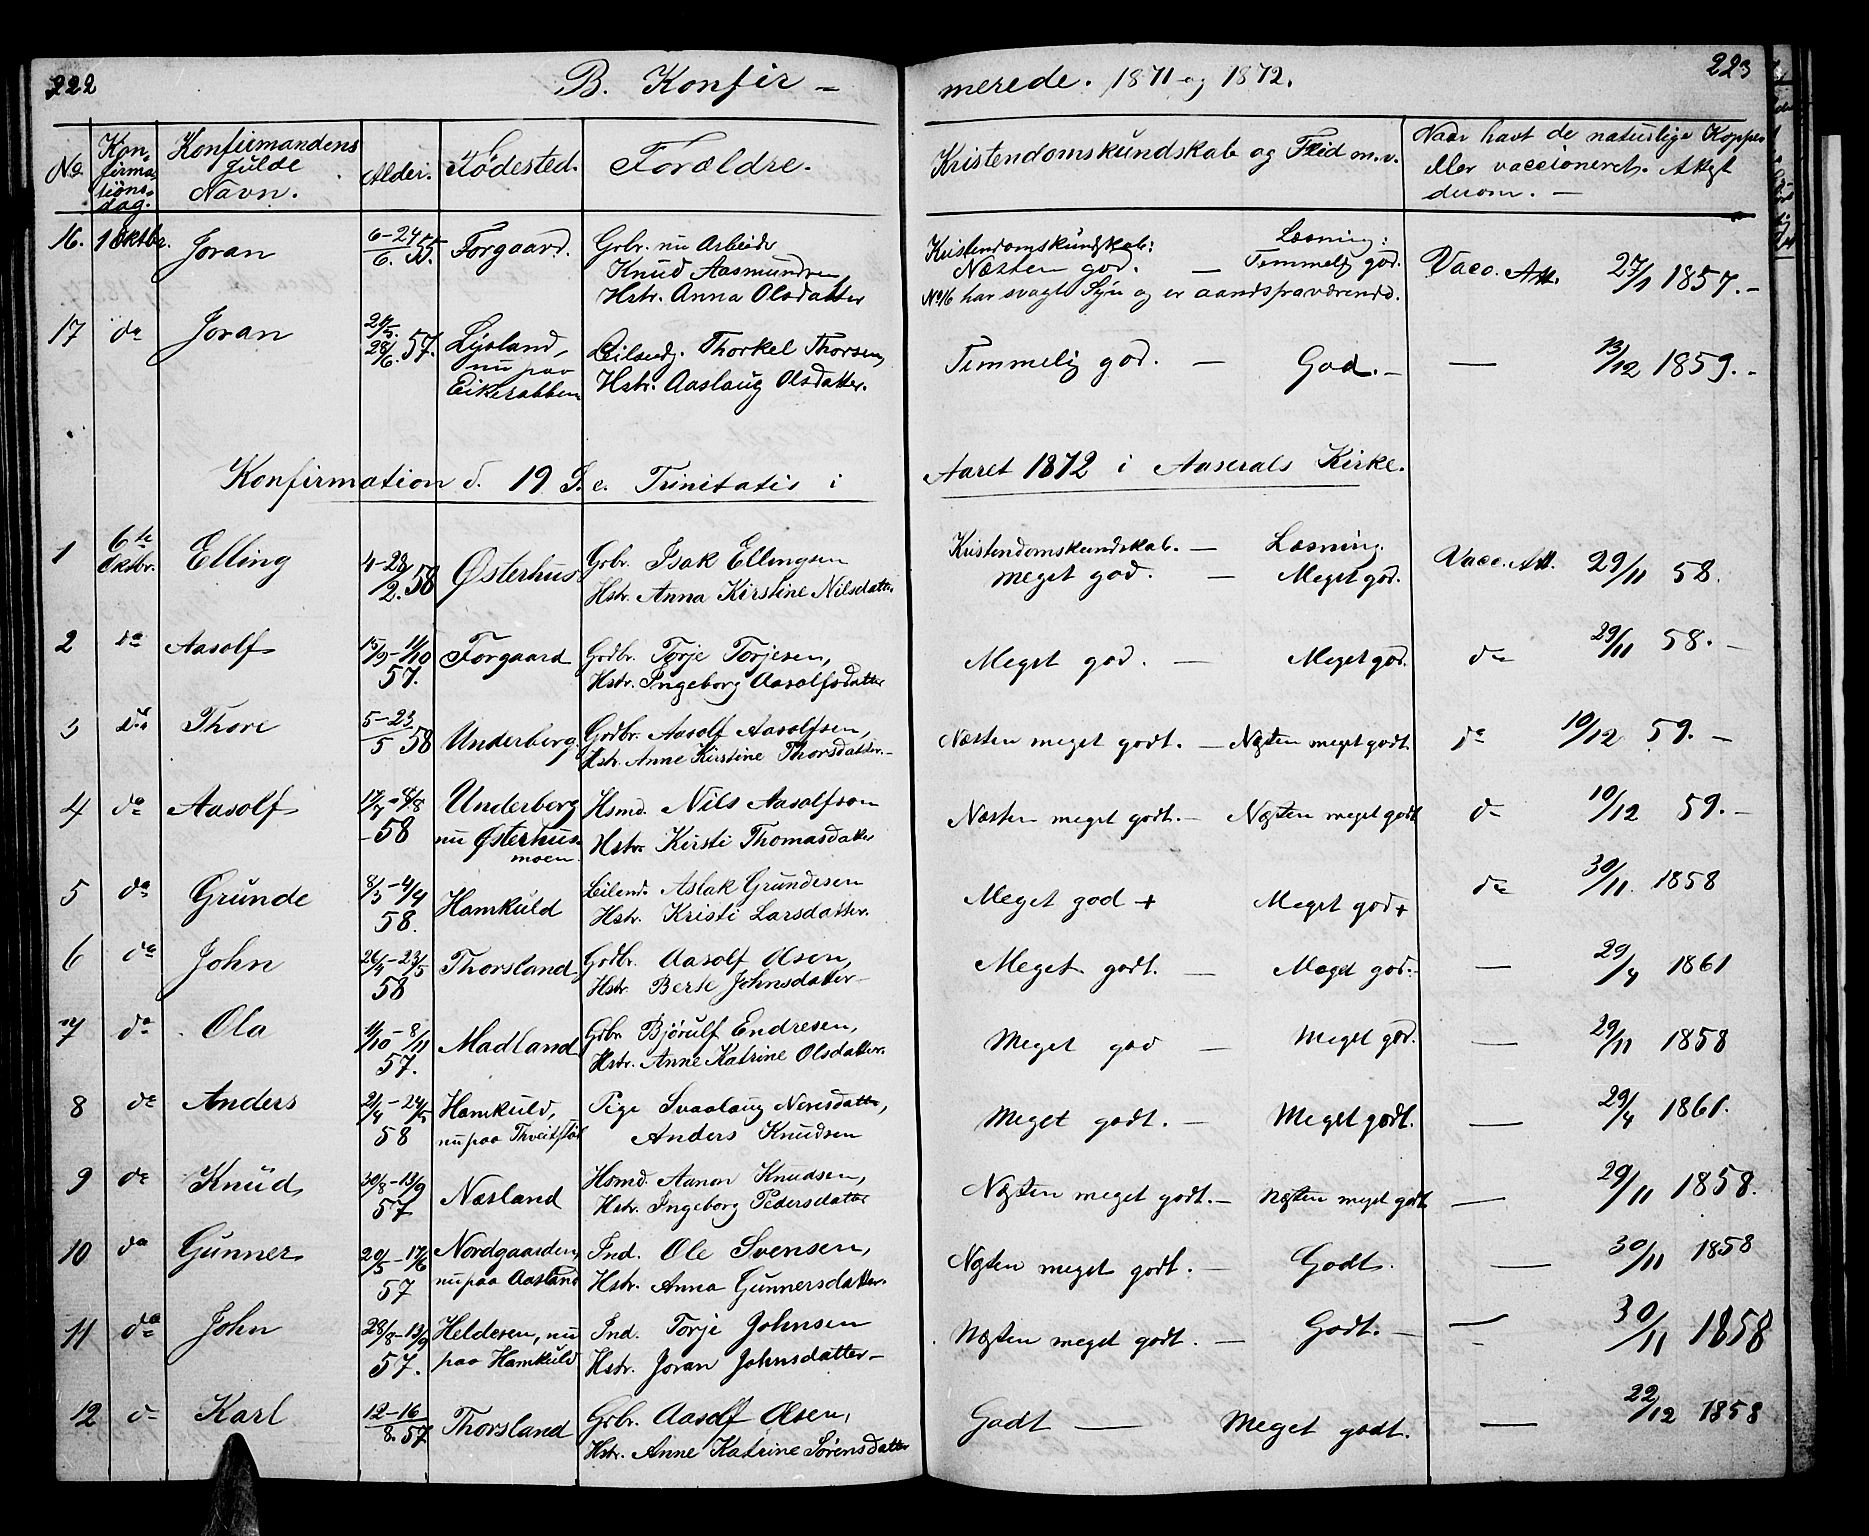 222
B. Konfir-
merede. 1871 og 1872.
223
No.
Kon-
firma-
tions-
dag.
Konfirmandens
fulde
Navn.
Alder.
Fødested.
Forældre.
Kristendomskundskab og Flid m.v.
Naar havt de naturlige Kopper
eller vaccioneret. Attest
derom. —
16. 1 Oktbr. Joran 6-24/6. 55. Forgaard. Grbr. nu Arbeider
Knud Aasmundsen,
Hstr. Anna Olsdatter
Kristendomskundskab: Læsning:
Næsten god. — Temmelig god. Vacc. Att. 27/1 1857. -
No 16 har svagt Syn og er aandsfraværende.
17 do Joran 24/5. 28/6. 57. Ljosland, Leilændg. Thorkel Thorsen,
nu paa
Eikerabben Hstr. Aaslaug Olsdatter.
Temmelig god. — God. - — 13/12 1859. -
Konfirmation d. 19 S. e. Trinitatis i Aaret 1872 i Aaserals Kirke.
1 6te Oktbr. Elling 4-28/2. 58 Østerhus Grbr. Isak Ellingsen
Hstr. Anna Kirstine Nilsdatter.
Kristendomskundskab. — Læsning.
meget god. — Meget god. Vacc. Att. 29/11 58.
2 do Aasolf 15/9-11/10 57. Forgaard Grdbr. Torje Torjesen,
Hstr. Ingeborg Aasolfsdatter
Meget god. — Meget god. do 29/11 58. -
3 do Thore 5-23/5 58 Underberg Grdbr. Aasolf Aasolfsen,
Hstr. Anne Kirstine Thorsdatter. -
Næsten meget godt. — Næsten meget godt. do 10/12 59. -
4 do Aasolf 17/7-8/8 -58 Underberg Hsmd. Nils Aasolfson
nu Østerhus-
moen. Hstr. Kirsti Thomasdatter
Næsten meget godt. — Næsten meget godt do 10/12 59. -
5 do Grunde 8/3-4/4 58. Hamkuld Leilend. Aslak Grundesen
Hstr. Kristi Larsdatter.
Meget god + Meget god + do 30/11. 1858
6 do John 26/4-23/5 58 Thorsland Grdbr. Aasolf Olsen,
Hstr. Berte Johnsdatter -
Meget godt. — Meget god. - — 29/4 1861
7 do Ola 11/10-8/11 57. Madland Grbr. Bjørulf Endresen,
Hstr. Anne Katrine Olsdatter.
Meget god — Meget god. — 29/11 1858
8 do Anders 21/4-24/5 58 Hamkuld, Pige Svaalaug
nu paa Anders Knudsen
Meget godt. — Meget godt. — 29/4 1861.
9 do Knud 30/8-13/9 57 Næsland Hsmd. Aanon Knudsen,
Hstr. Ingeborg Pedersdatter
Næsten meget godt. — Næsten meget godt — 29/11 1858.
10 do Gunner 20/5-17/6 57 Nordgaarden, Ind. Ole Svensen,
nu paa Aasland Hstr. Anna Gunnersdatter.
Næsten meget godt. — Godt. — 30/11 1858
11 do John 28/8-13/9 57. Helderen, nu Ind. Torje Johnsen
paa Hamkuld Hstr. Joran Johnsdatter -
Næsten meget godt. — Godt. — — 30/11 1858
12 do Karl 12-16/8. 57 Thorsland Grbr. Aasolf Olsen,
Hstr. Anne Katrine Sørensdatter
Godt — Meget godt. — 22/12 1858